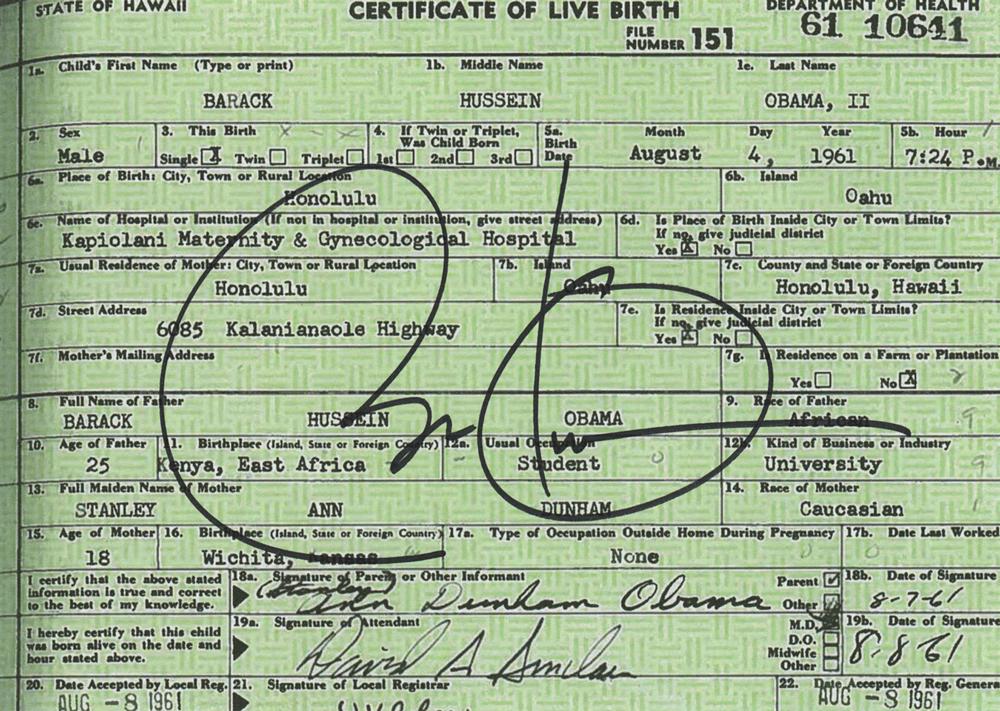 STATE OF HAWAII CERTIFICATE OF LIVE BIRTH DEPARTMENT OF HEALTH
FILE NUMBER 151 61 10641
1a. Child's First Name (Type or print) 1b. Middle Name 1c. Last Name
BARACK HUSSEIN OBAMA, II
2. Sex 3. This Birth 4. If Twin or Triplet, Was Child Born 5a. Birth Date Month Day Year 5b. Hour
Male Single X Twin Triplet 1st 2nd 3rd August 4, 1961 7:24 P.M.
6a. Place of Birth: City, Town or Rural Location 6b. Island
Honolulu Oahu
6c. Name of Hospital or Institution (If not in hospital or institution, give street address) 6d. Is Place of Birth Inside City or Town Limits? If no, give judicial district
Kapiolani Maternity & Gynecological Hospital Yes X No
7a. Usual Residence of Mother: City, Town or Rural Location 7b. Island 7c. County and State or Foreign Country
Honolulu Oahu Honolulu, Hawaii
7d. Street Address 7e. Is Residence Inside City or Town Limits? If no, give judicial district
6085 Kalanianaole Highway Yes X No
7f. Mother's Mailing Address 7g. Is Residence on a Farm or Plantation
Yes No X
8. Full Name of Father 9. Race of Father
BARACK HUSSEIN OBAMA African
10. Age of Father 11. Birthplace (Island, State or Foreign Country) 12a. Usual Occupation 12b. Kind of Business or Industry
25 Kenya, East Africa Student University
13. Full Maiden Name of Mother 14. Race of Mother
STANLEY ANN DUNHAM Caucasian
15. Age of Mother 16. Birthplace (Island, State or Foreign Country) 17a. Type of Occupation Outside Home During Pregnancy 17b. Date Last Worked
18 Wichita, Kansas None
I certify that the above stated information is true and correct to the best of my knowledge. 18a. Signature of Parent or Other Informant Parent Other 18b. Date of Signature
(Stanley) Ann Dunham Obama 8-7-61
I hereby certify that this child was born alive on the date and hour stated above. 19a. Signature of Attendant M.D. D.O. Midwife Other 19b. Date of Signature
David A Sinclair 8-8-61
20. Date Accepted by Local Reg. 21. Signature of Local Registrar 22. Date Accepted by Reg. General
AUG -8 1961 AUG -8 1961